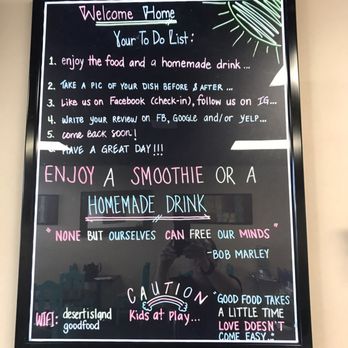 Welcome Home
Your To Do List:
1. enjoy the food and a homemade drink...
2. TAKE A PIC OF YOUR DISH BEFORE & AFTER...
3. Like us on Facebook (check-in), follow us on IG...
4. Write your review on FB, Google and/or YELP...
5. come back soon!
6. HAVE A GREAT DAY!!!
ENJOY A SMOOTHIE OR A
HOMEMADE DRINK
"NONE BUT OURSELVES CAN FREE OUR MINDS"
-BOB MARLEY
CAUTION
Kids at Play...
WIFI: desertisland
goodfood
"GOOD FOOD TAKES
A LITTLE TIME
LOVE DOESN'T
COME EASY...